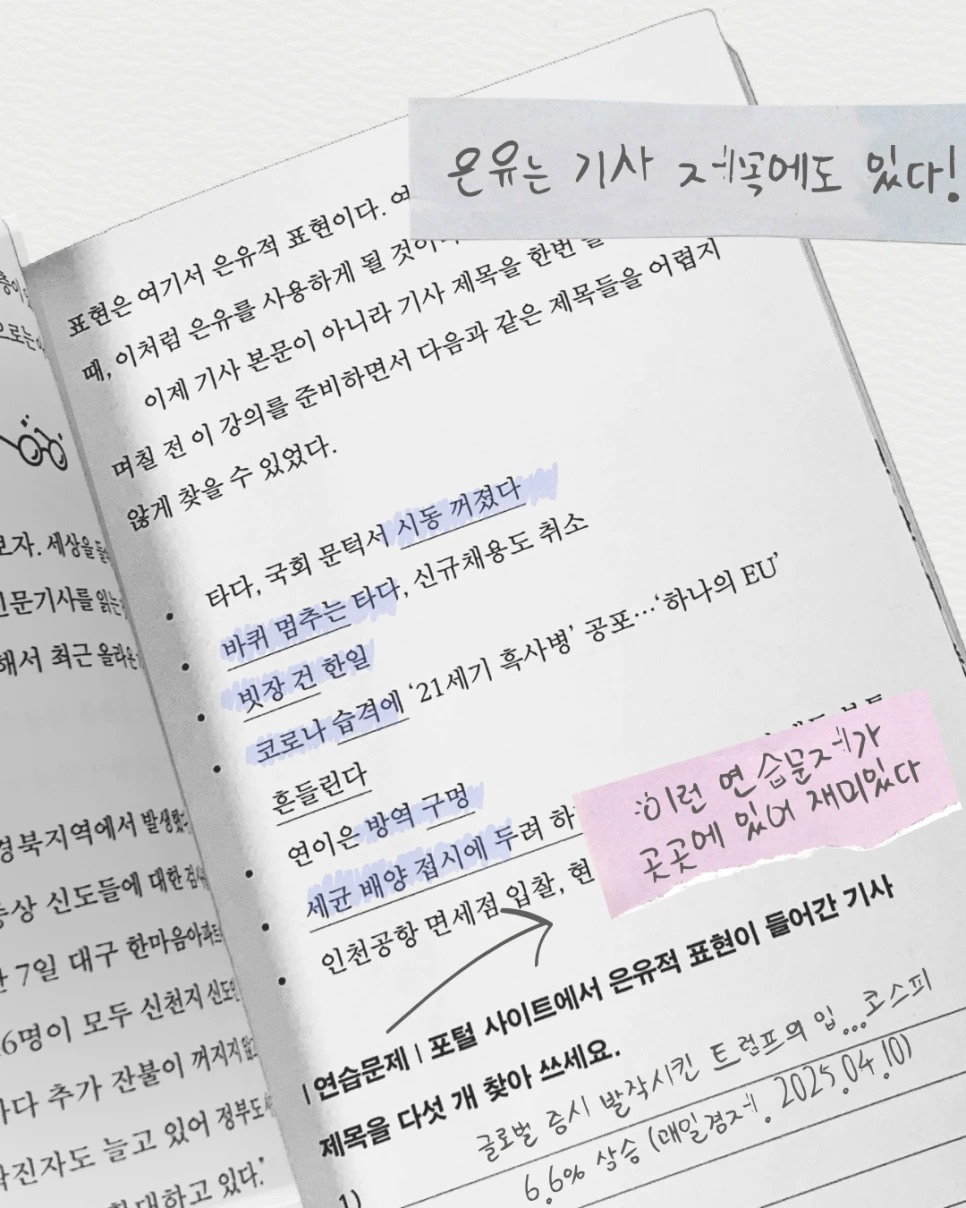 온유는 기사 제목에도 있다!
표현은 여기서 은유적 표현이다. 여
때, 이처럼 은유를 사용하게 될 것이
이제 기사 본문이 아니라 기사 제목을 한번
며칠 전 이 강의를 준비하면서 다음과 같은 제목들을 어렵지
않게 찾을 수 있었다.
• 타다, 국회 문턱서 시동 꺼졌다
• 바퀴 멈추는 타다, 신규채용도 취소
• 빗장 건 한일
• 코로나 습격에 ‘21세기 흑사병’ 공포…‘하나의 EU’
흔들린다
• 연이은 방역 구멍
• 세균 배양 접시에 두려 하
• 인천공항 면세점 입찰, 현
:이런 연습문제가
곳곳에 있어 재미있다
| 연습문제 | 포털 사이트에서 은유적 표현이 들어간 기사
제목을 다섯 개 찾아 쓰세요.
글로벌 증시 발작시킨 트럼프의 입...코스피
1) 6.6% 상승 (매일경제. 2025.04.10)
보자. 세상을
신문기사를 읽는
해서 최근 올라온
경북지역에서 발생했다
증상 신도들에 대한 검사
7일 대구 한마음아파트
6명이 모두 신천지 신도
다 추가 잔불이 꺼지지 않고
확진자도 늘고 있어 정부도
대하고 있다.’